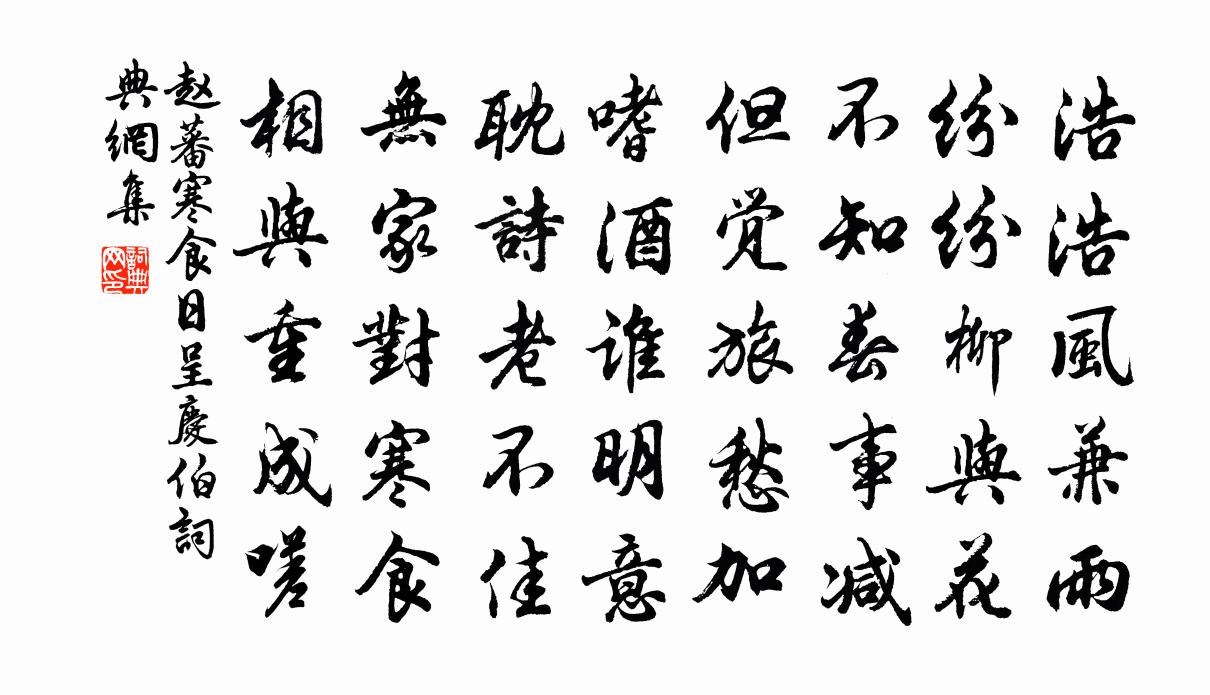 浩浩風兼雨
紛紛柳與花
不知春事減
但覺旅愁加
嗜酒誰明意
耽詩老不佳
無家對寒食
相與重成嗟
赵蕃寒食日呈慶伯詞
典網集
詞典
网印